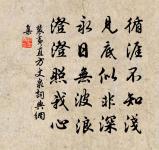 循涯不知淺
見底似非深
永日無波浪
澄澄照我心
裴夷直方丈泉詞典網
集